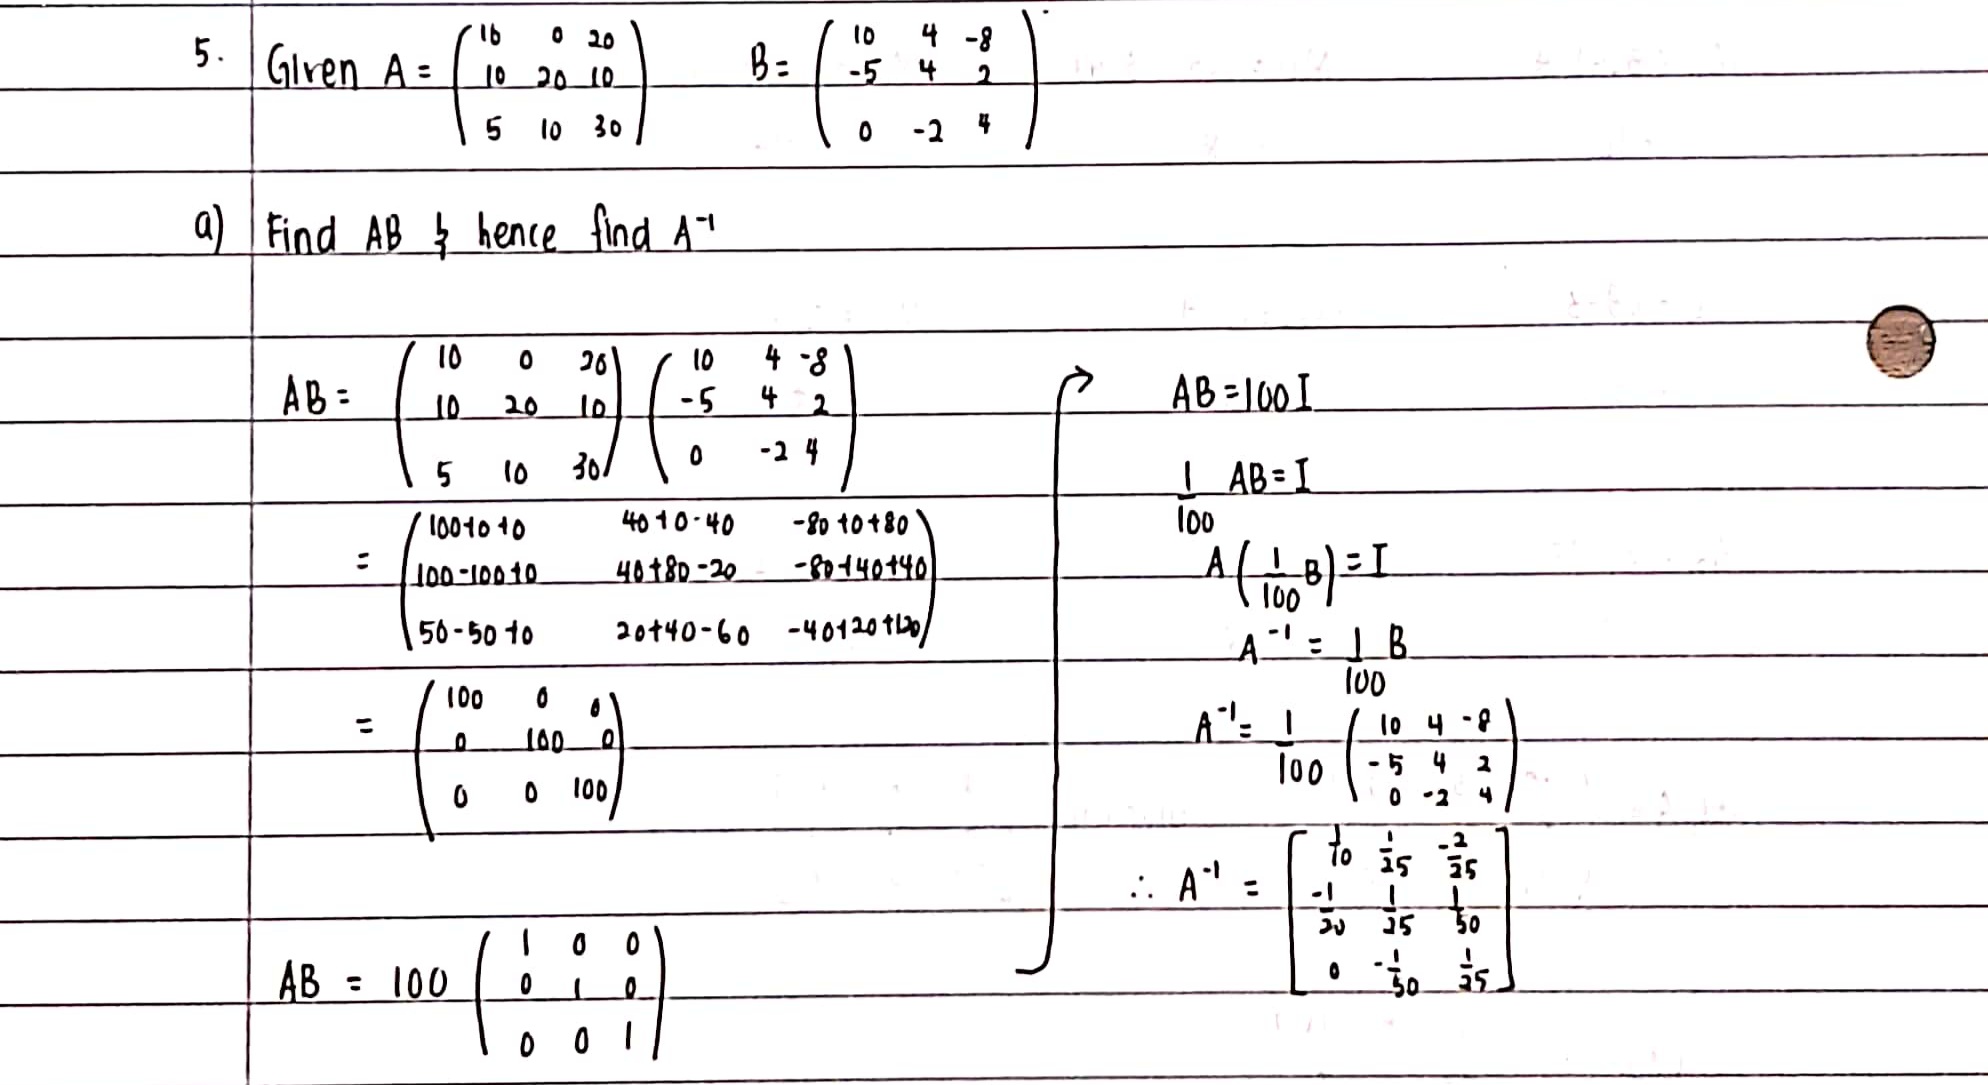 5. Given A = ( 16 0 20 B = ( 10 4 -8
10 20 10 -5 4 2
5 10 30 ) 0 -2 4 )
a) Find AB & hence find A⁻¹
AB = ( 10 0 20 ) ( 10 4 -8 )
10 20 10 -5 4 2
5 10 30 0 -2 4
= ( 100+0+0 40+0-40 -80+0+80 )
100-100+0 40+80-20 -80+40+40
50-50+0 20+40-60 -40+20+120
= ( 100 0 0 )
0 100 0
0 0 100
AB = 100 ( 1 0 0 )
0 1 0
0 0 1
AB = 100 I
1/100 AB = I
A ( 1/100 B ) = I
A⁻¹ = 1/100 B
A⁻¹ = 1/100 ( 10 4 -8 )
-5 4 2
0 -2 4
∴ A⁻¹ = [ 1/10 1/25 -2/25 ]
-1/20 1/25 1/50
0 -1/50 1/25